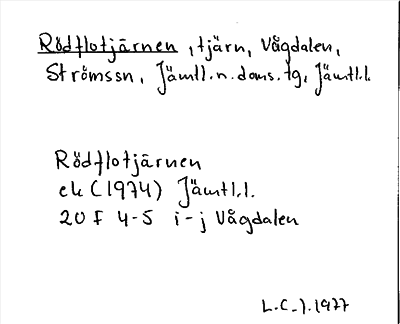 Rödflotjärnen, tjärn, Vågdalen,
Strömssn, Jämtl.n.doms.tg, Jämtl.l.
Rödflotjärnen
ek (1974) Jämtl.l.
20 F 4-5 i-j Vågdalen
L.C-J.1977